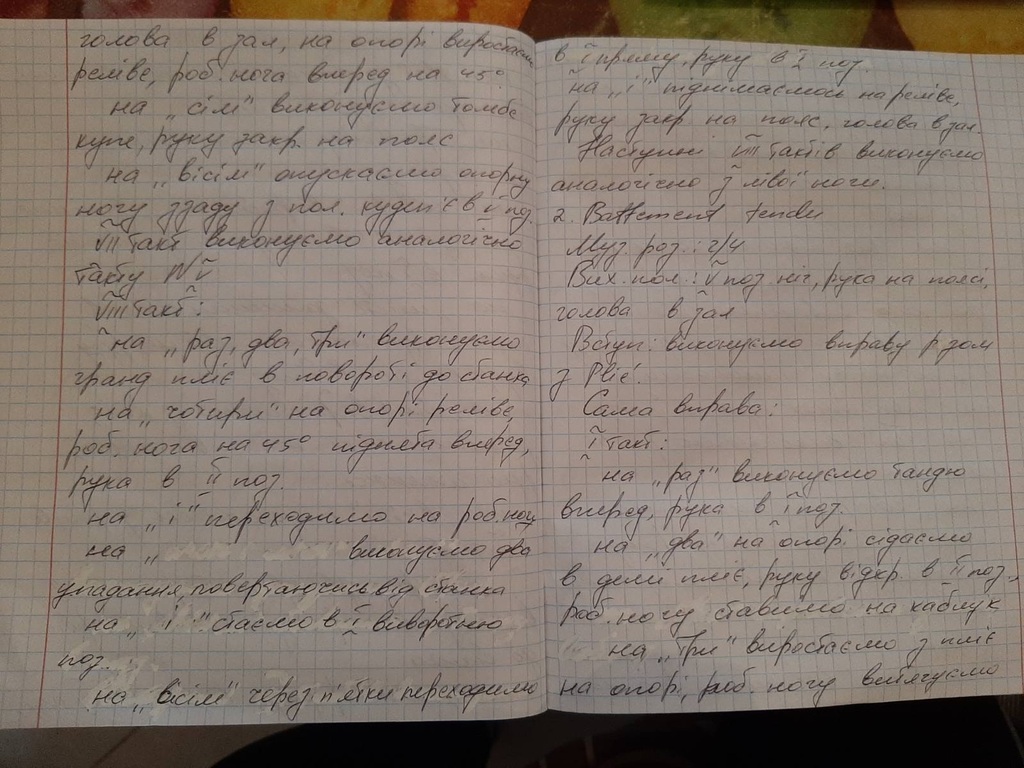 голова в зал, на опорі виростаєм
реліве, роб. нога вперед на 45°
на „сім" виконуємо томбе
купе, руку закр. на пояс
на „вісім" опускаємо опорну
ногу ззаду з пол. кудеп'є в V поз.
VII такт виконуємо аналогічно
такту № V
VIII такт:
на „раз, два, три" виконуємо
гранд пліє в повороті до станка
на „чотири" на опорі реліве,
роб. нога на 45° піднята вперед,
рука в II поз.
на „і" переходимо на роб. ногу
на „ виконуємо два
упадання, повертаючись від станка
на „ і " стаємо в I виворотню
поз.
на „вісім" через п'ятки переходимо
в I пряму, руку в I поз.
на „і" піднімаємось на реліве,
руку закр. на пояс, голова в зал.
Наступні VIII тактів виконуємо
аналогічно з лівої ноги.
2. Battement tendu
Муз. роз.: 2/4
Вих. пол.: V поз. ніг, рука на поясі,
голова в зал
Вступ: виконуємо вправу разом
з Plié.
Сама вправа:
I такт:
на „раз" виконуємо тандю
вперед, рука в I поз.
на „два" на опорі сідаємо
в демі пліє, руку відкр. в II поз.,
роб. ногу ставимо на каблук
на „три" виростаємо з пліє
на опорі, роб. ногу витягуємо